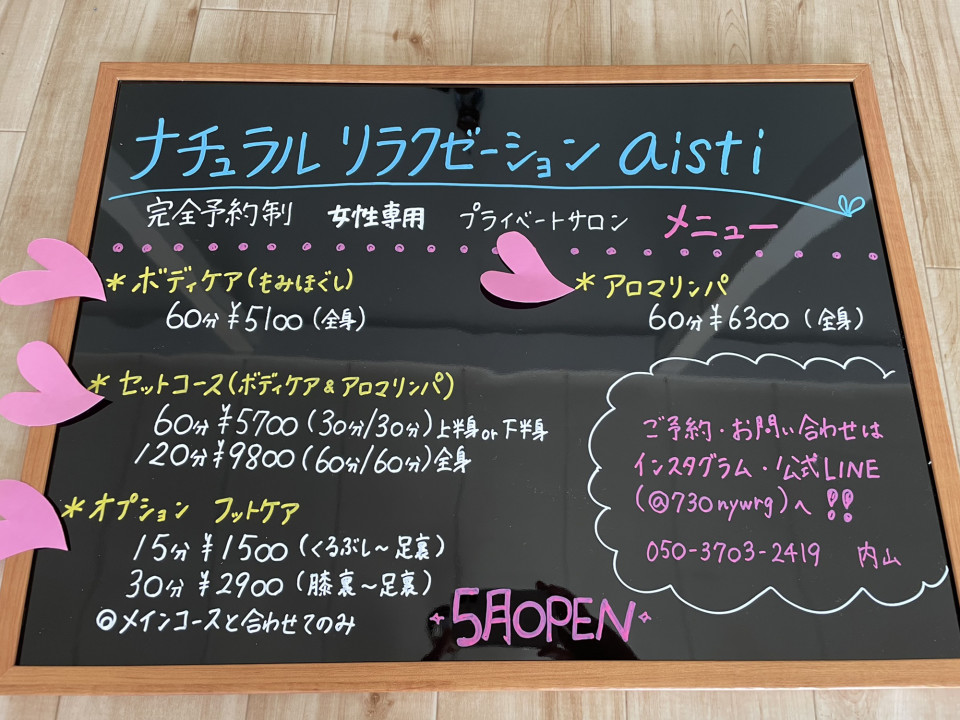 ナチュラル リラクゼーション aisti
完全予約制 女性専用 プライベートサロン メニュー
＊ボディケア(もみほぐし)
60分 ¥5100 (全身)
＊アロマリンパ
60分 ¥6300 (全身)
＊セットコース(ボディケア&アロマリンパ)
60分 ¥5700 (30分/30分) 上半身or下半身
120分 ¥9800 (60分/60分) 全身
＊オプション フットケア
15分 ¥1500 (くるぶし〜足裏)
30分 ¥2900 (膝裏〜足裏)
◎メインコースと合わせてのみ
ご予約・お問い合わせは
インスタグラム・公式LINE
(@730nywrg)へ!!
050-3703-2419 内山
5月OPEN